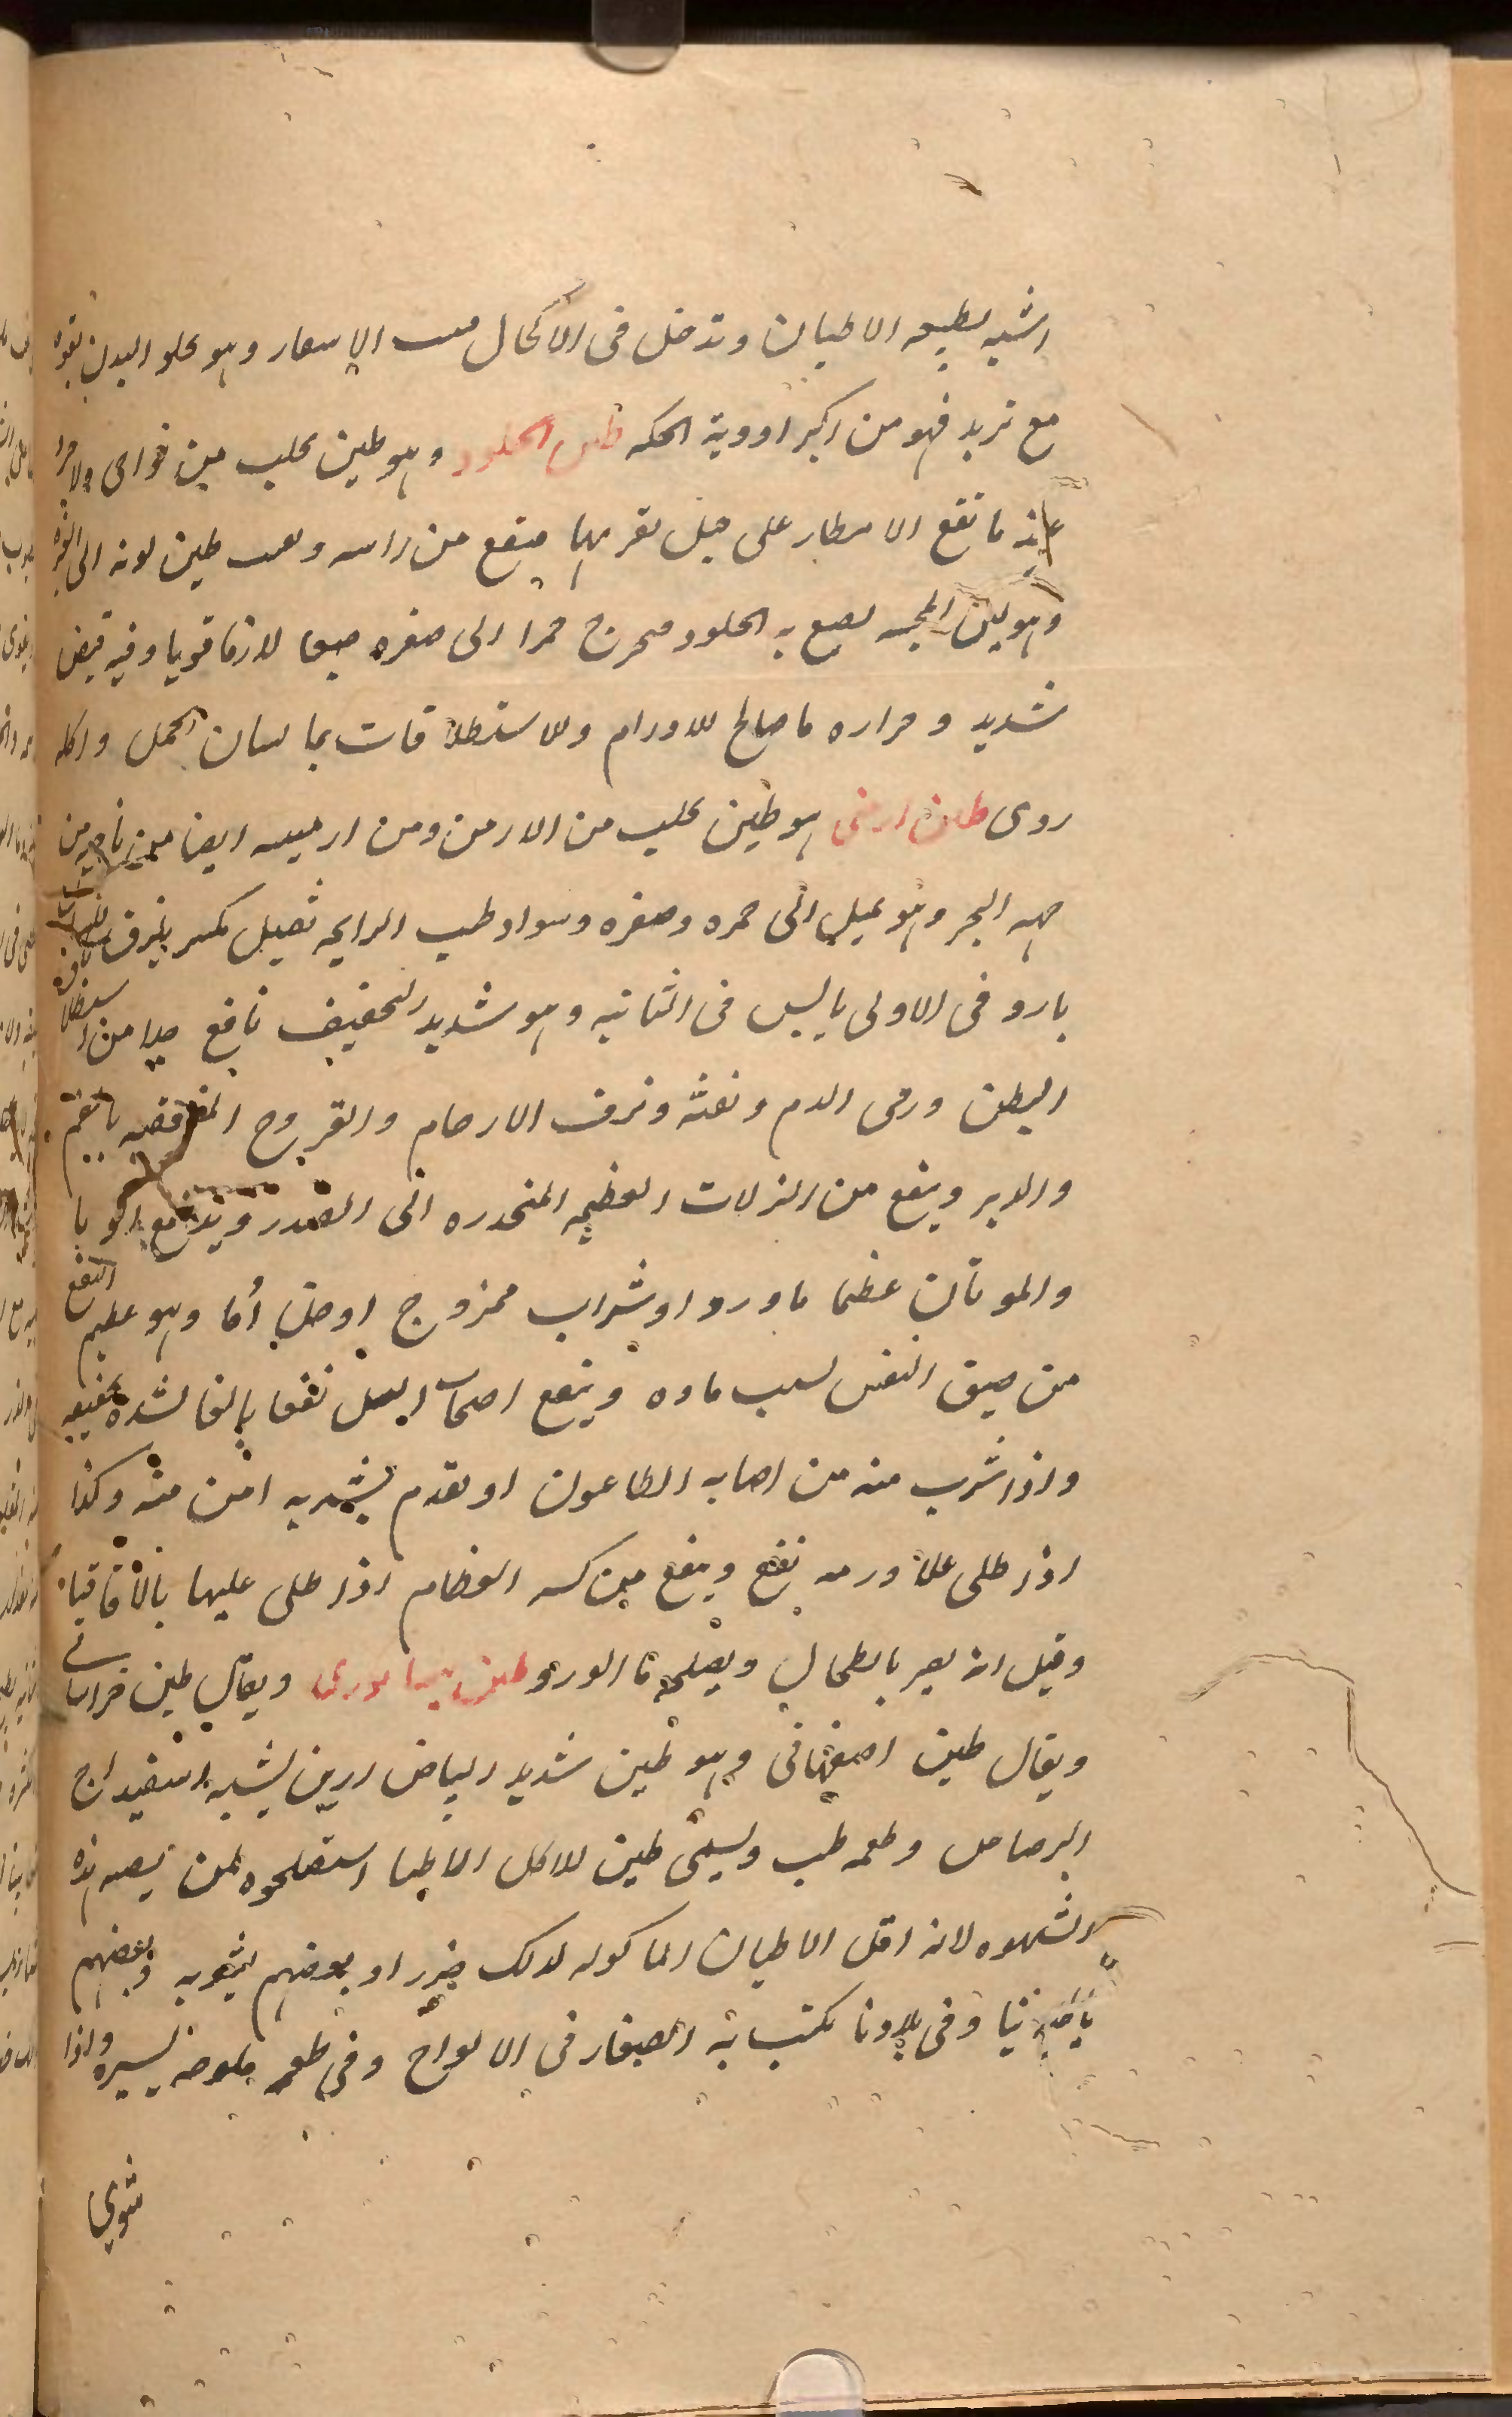 اشبه بطبيعه الاطيان وتدخل فى الاكحال الاسعار وهو يحلو البدن بقوه
مع تربد فهو من اكبر ادوية الحكه طين الجلود وهو طين يحلب من نواحى
عند ما تقع الامطار على جبل بقربها فيقع من راسه طين لونه الى
وهو لين المجسه يصبع به الجلود فيخرج حمرا الى صفره صبغا لازما قويا وفيه قبض
شديد وحراره ما صالح للاورام وللاستطلاقات بما لسان الحمل واكله
ردى طين ارمنى هو طين يحلب من الارمن ومن ارمينيه ايضا من ناحية من
جهه البحر وهو يميل الى حمره وصفره وسواد طيب الرايحه ثقيل مكسر
بارد فى الاولى يابس فى الثانيه وهو شديد التجفيف نافع جدا من استطلاق
البطن ورمى الدم ونفثه ونزف الارحام والقروح بالفم
والدبر وينفع من النزلات العظيمه المنحدره الى الصدر وينفع مع الوبا
والموتان عظيما ماورد او شراب ممزوج او خل اما وهو عظيم النفع
من ضيق النفس لسبب ماده وينفع اصحاب السل نفعا بالغا لشدة تجفيفه
واذا شرب منه من اصابه الطاعون او تقدم بشربه امن منه وكذا
اذا طلى على ورمه نفع وينفع من كسر العظام اذا طلى عليها بالاقاقيا
وقيل انه يضر بالطحال ويصلحه ما الورد طين نيسابورى ويقال طين خراسانى
ويقال طين اصفهانى وهو طين شديد البياض ارزين يشبه اسفيداج
الرصاص وطعمه طيب ويسمى طين للاكل الاطبا استصلحوه لمن تصيبه هذه
الشهوه لانه اقل الاطيان الماكوله لذلك ضررا وبعضهم يشويه وبعضهم
ياكله نيا وفى بلادنا يكتب به الصغار فى الالواح وفى طعمه ملوحه يسيره واذا
شوى